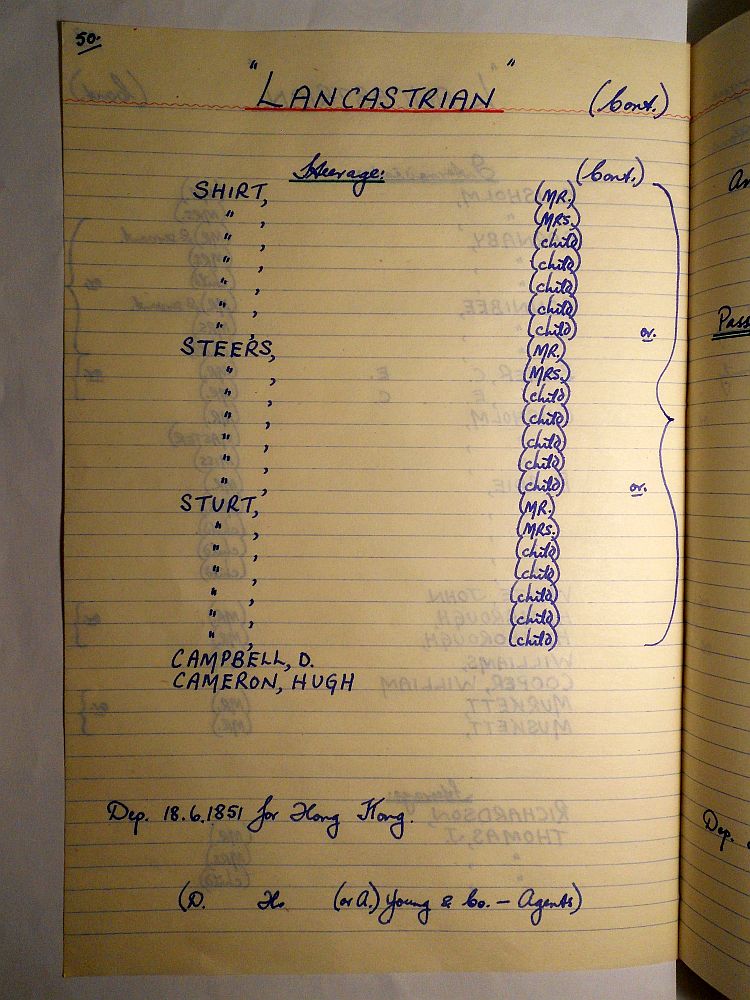 50.
"LANCASTRIAN" (Cont.)
Steerage: (Cont.)
SHIRT, (MR.)
" , (MRS.)
" , (child)
" , (child)
" , (child)
" , (child)
" , (child) or.
STEERS, (MR.)
" , (MRS.)
" , (child)
" , (child)
" , (child)
" , (child)
" , (child) or.
STURT, (MR.)
" , (MRS.)
" , (child)
" , (child)
" , (child)
" , (child)
" , (child)
CAMPBELL, D.
CAMERON, HUGH
Dep. 18.6.1851 for Hong Kong.
(D. Ho (or A.) Young & Co. – Agents)
Pass
Dep.